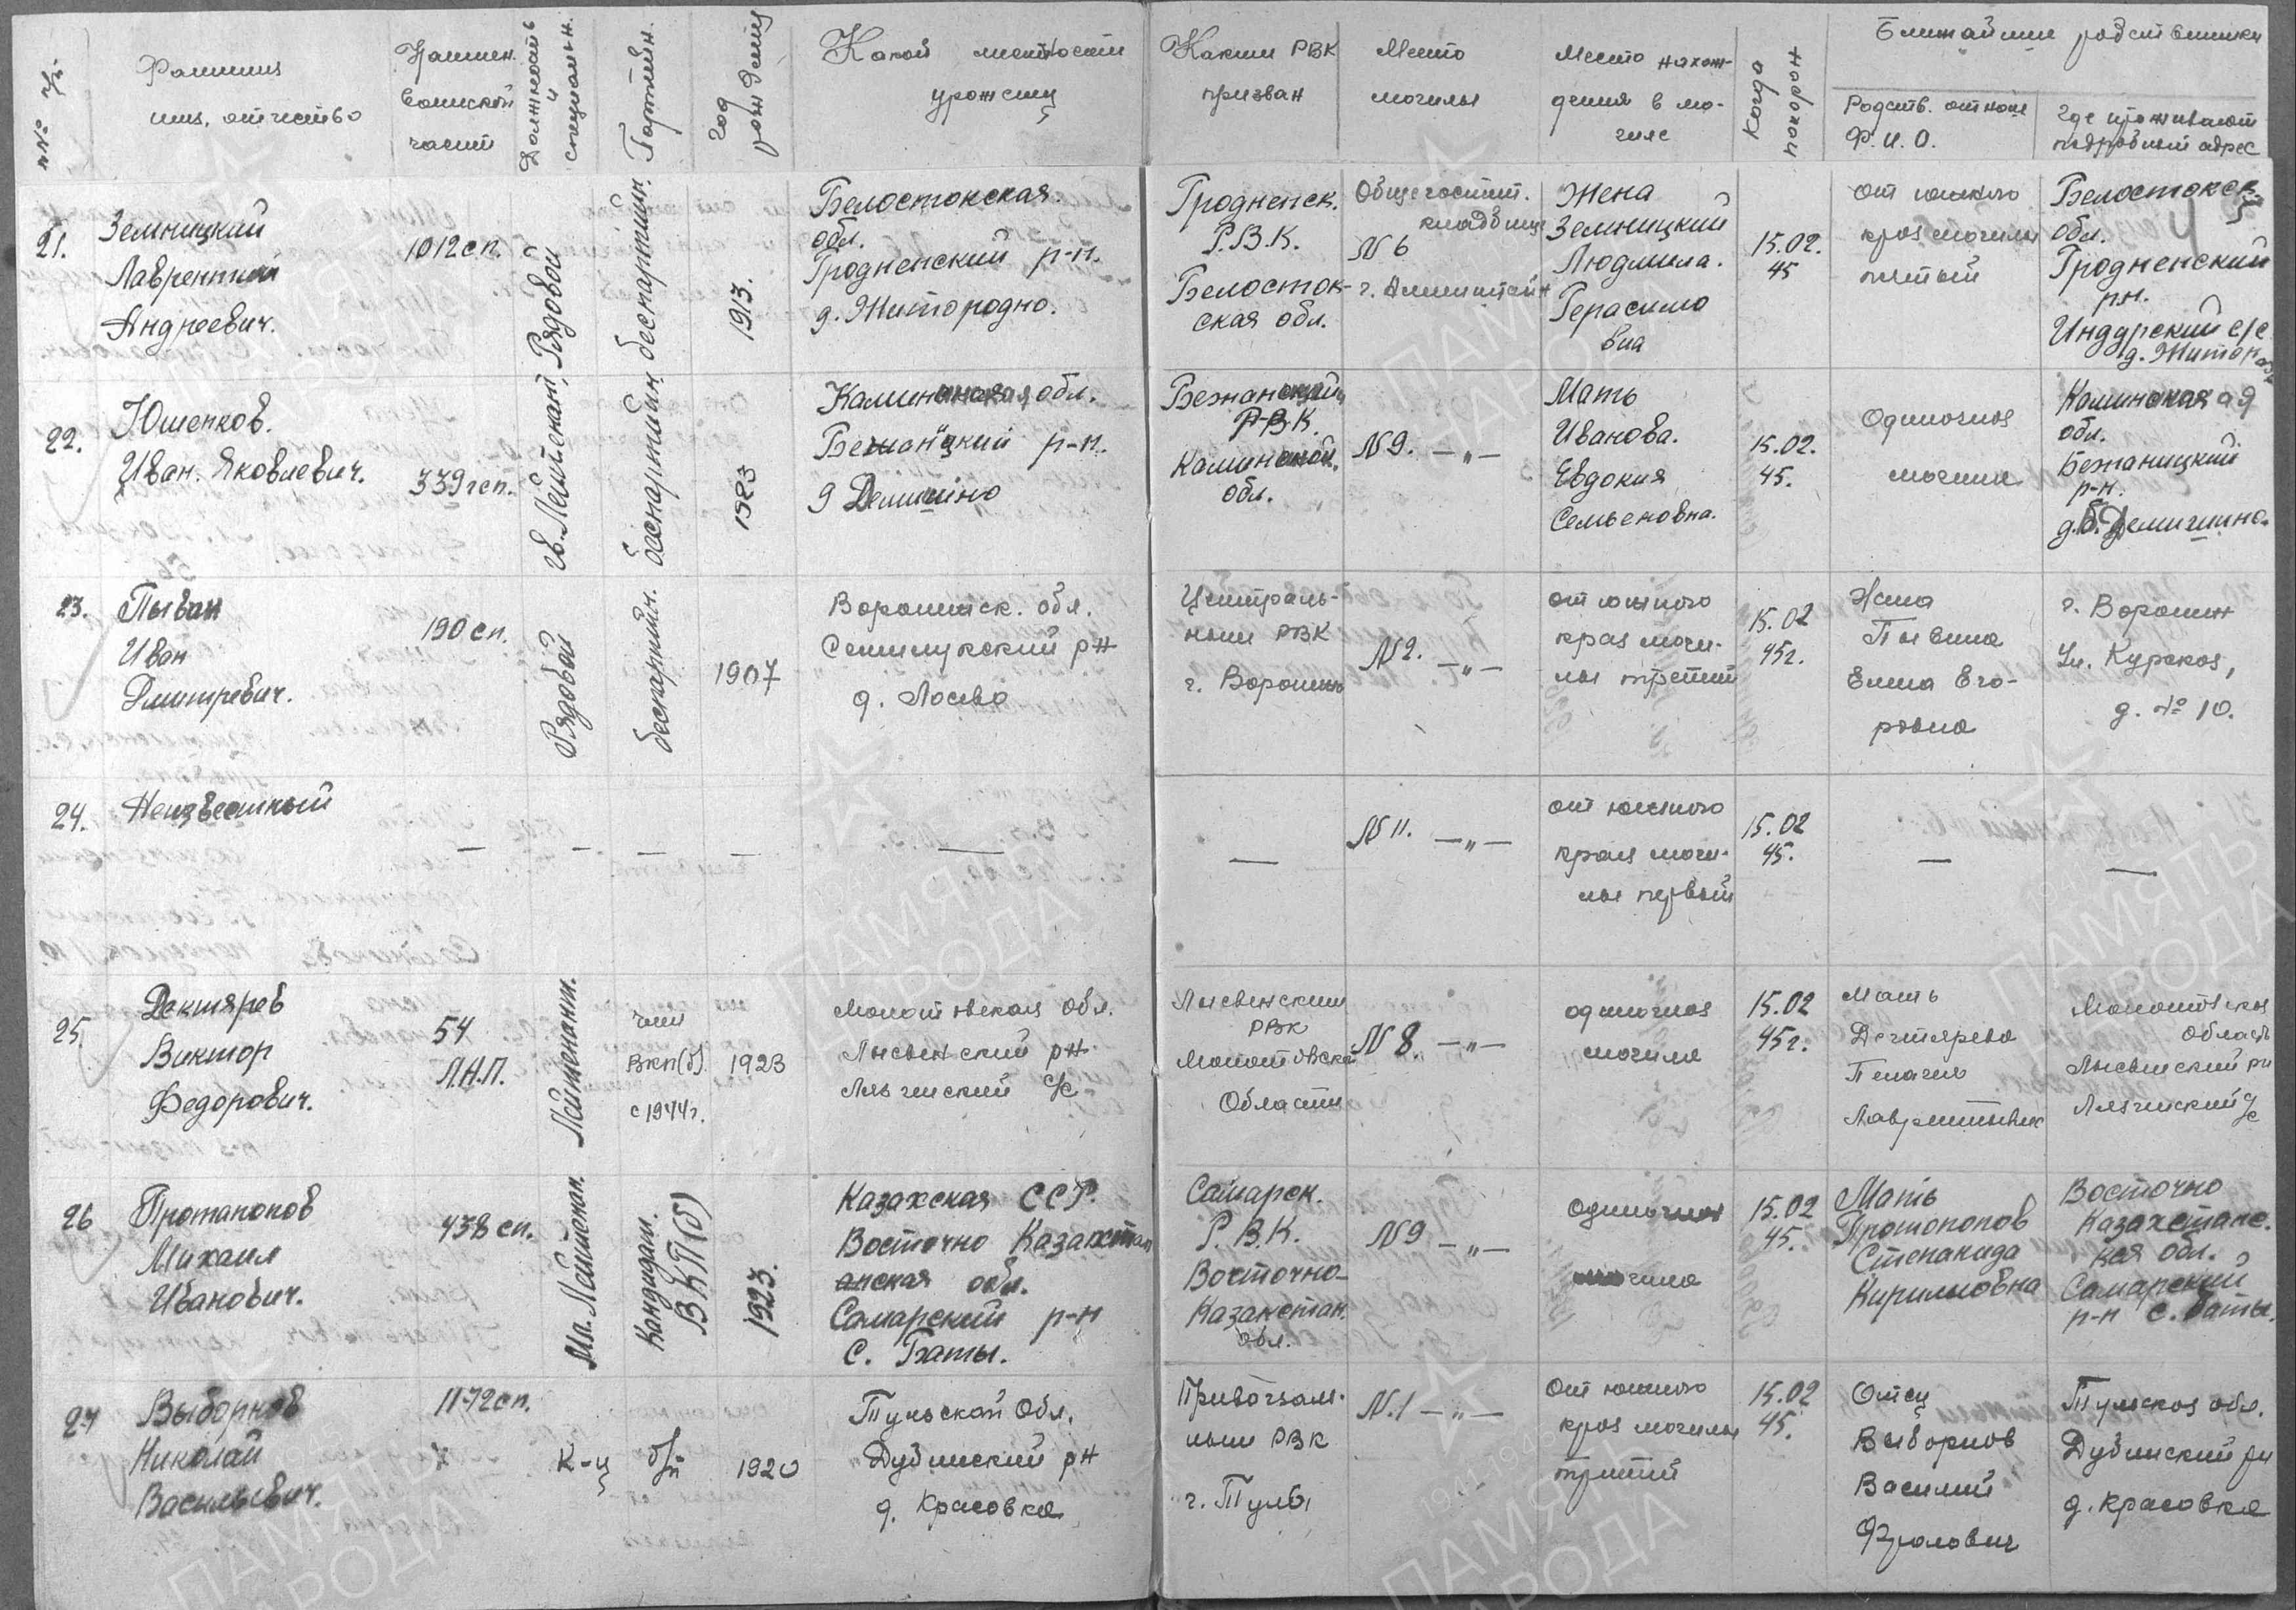 №№ п/п.
Фамилия
имя, отчество
Наимен.
воинской
части
Должность
и
специальн.
Партийн.
Год
рождения
Какой местности
уроженец
Каким РВК
призван
Место
могилы
Место нахож-
дения в мо-
гиле
Когда
похорон
Ближайшие родственники
Родств. отнош
Ф.И.О.
Где проживают
подробный адрес
21.
Земницкий
Лаврентий
Андреевич.
1012 сп.
Рядовой
беспартийн.
1913.
Белостокская.
обл.
Гродненский р-н.
д. Житородно.
Гродненск.
Р.В.К.
Белосток-
ская обл.
Общегостит.
кладбище
N 6
г. Алленштайн
Жена
Земницкий
Людмила.
Герасимо
вна
15.02.
45
от южного
края могилы
пятый
Белостокск
обл.
Гродненский
рн.
Индурский с/с
22.
Юшенков.
Иван. Яковлевич.
339 гсп.
гв. Лейтенант,
беспартийн
1923
Калининская обл.
Бежаницкий р-н.
д Демшино
Бежанский
Р.В.К.
Калининской.
обл.
N 9. —„—
Мать
Иванова.
Евдокия
Семьеновна.
15.02.
45.
Одиночная
могила
Калинская ая
обл.
Бежаницкий
р-н.
23.
Пыван
Иван
Дмитревич.
190 сп.
Рядовой
беспартийн.
1907
Воронежск. обл.
Семилукский рн
д. Лосево
Централь-
ным РВК
г. Воронеж
N 2. —„—
от южного
края моги-
лы третий
15.02
45г.
Жена
Пывина
Елена Его-
ровна
г. Воронеж
Ул. Курская,
д. № 10.
24.
Неизвестный
—
—
—
—
—
—
N 11. —„—
от южного
края моги-
лы первый
15.02
45.
—
—
25
Дектярев
Виктор
Федорович.
54
Л.А.П.
Лейтенант.
член
ВКП(б).
с 1944г.
1923
Молотовская обл.
Лысвенский рн
с/с
Лысвенским
РВК
Молотовской
Области
N 8. —„—
одиночная
могила
15.02
45г.
Мать
Дегтярева
Пелагея
Молотовская
область
Лысвенский рн
с/с
26
Протапопов
Михаил
Иванович.
438 сп.
Мл. Лейтенан.
Кандидат.
ВКП(б)
1923.
Казахская ССР.
Восточно Казахстан
анская обл.
Самарский р-н
С. Баты.
Самарск.
Р.В.К.
Восточно-
Казакстан.
обл.
N 9 —„—
одиночная
могила
15.02
45.
Мать
Протопопов
Степанида
Кирилловна
Восточно
Казахстанс.
кая обл.
Самарский
р-н с. Баты.
27
Выборнов
Николай
Васильевич.
1172 сп.
К-ц
б/п
1920
Тульской Обл.
Дубенский рн
д. Красовка
Привокзал-
ным РВК
г. Тулы
N.1 —„—
От южного
края могилы
третий
15.02
45.
Отец
Выборнов
Василий
Фролович
Тульская обл.
Дубенский рн
д. Красовка
ПАМЯТЬ
НАРОДА